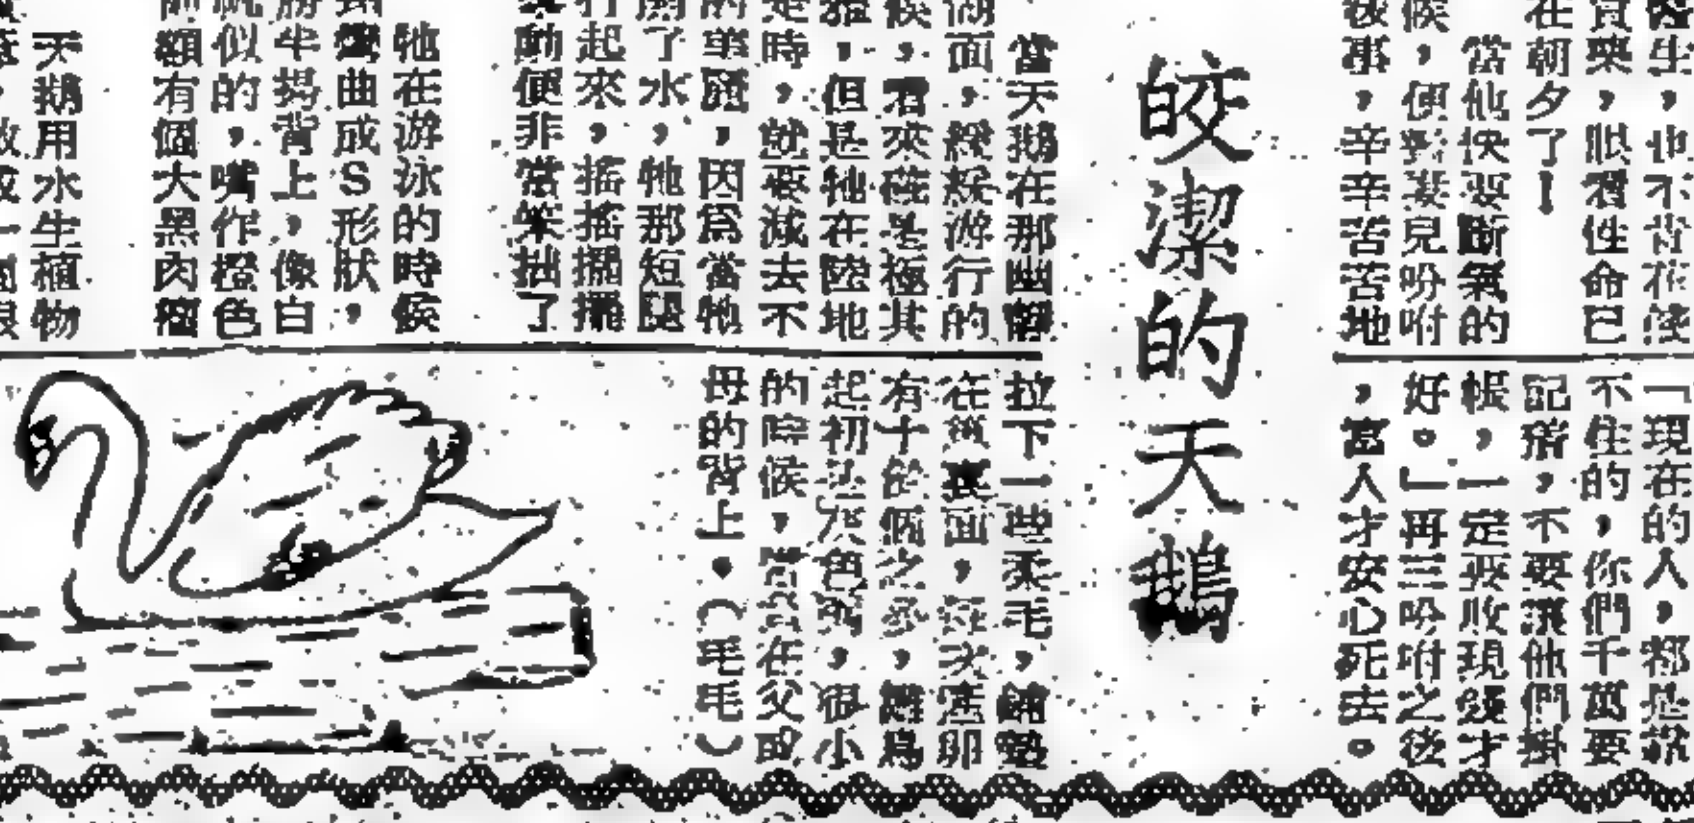 醫生，也不肯花錢
買藥，眼看性命已
在朝夕了！
當他快要斷氣的
候，便對妻兒吩咐
後事，辛辛苦苦地
「現在的人，都是靠
不住的，你們千萬要
記着，不要讓他們掛
帳，一定要收現錢才
好。」再三吩咐之後
，富人才安心死去。
皎潔的天鵝
當天鵝在那幽靜
湖面，緩緩游行的
候，看來確是極其
雅，但是牠在陸地
是時，就要減去不
的華麗，因為當牠
開了水，牠那短腿
行起來，搖搖擺擺
動便非常笨拙了
牠在游泳的時候
彎曲成S形狀，
半揚背上，像白
帆似的，嘴作橙色
額有個大黑肉瘤
天鵝用水生植物
拉下一些柔毛，鋪墊
在窩裏面，每次產卵
有十餘個之多，雛鳥
起初是灰色的，很小
的時候，常常在父或
母的背上。（毛毛）